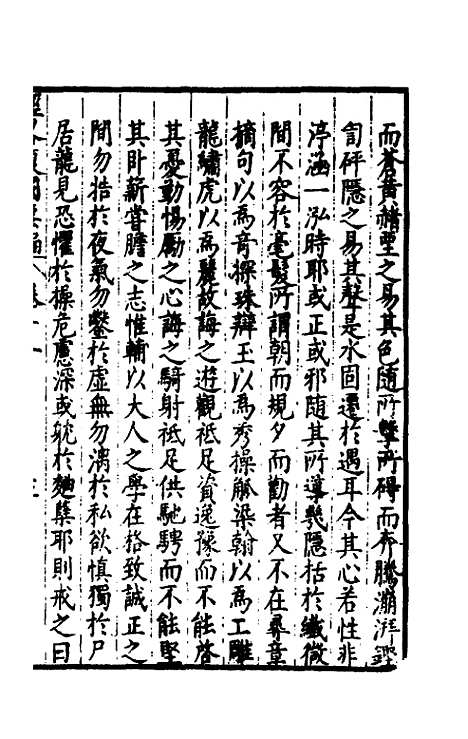 而蒼黄赭堊之易其色隨所擊所碍而奔騰瀰湃鏗
訇砰隱之易其聲是水固遷於遇耳今其心若性非
渟涵一泓時耶或正或邪隨其所導幾隱括於纖微
間不容於毫髮所謂朝而規夕而勸者又不在彞章
摘句以爲竒探珠辯玉以爲秀操觚染翰以爲工雕
龍繡虎以爲麗故誨之遊觀祗足資逸豫而不能啓
其憂動惕勵之心誨之騎射祗足供馳騁而不能堅
其卧薪嘗膽之志惟輔以大人之學在格致誠正之
間勿牿於夜氣勿鑿於虚無勿漓於私欲慎獨於尸
居龍見恐懼於操危慮深或躭於麯蘖耶則戒之曰